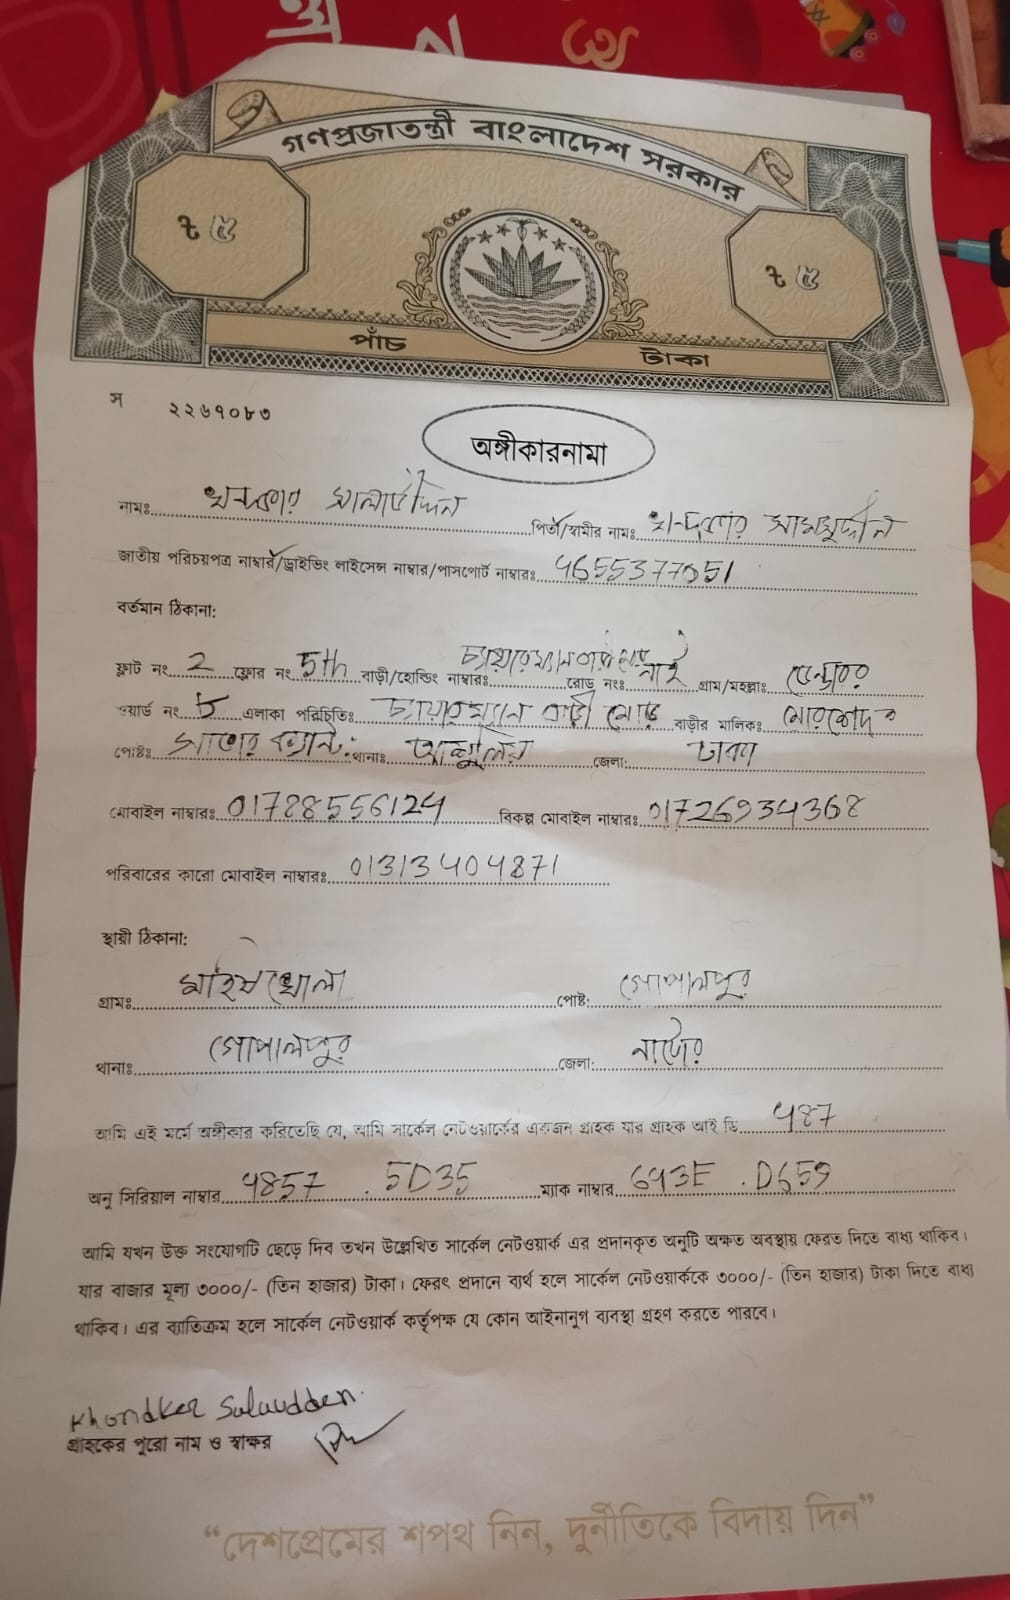 অ
গণপ্রজাতন্ত্রী বাংলাদেশ সরকার
৳ ৫ ৳ ৫
পাঁচ টাকা
স ২২৬৭০৮৩
অঙ্গীকারনামা
নামঃ খন্দকার সালাউদ্দিন পিতা/স্বামীর নামঃ খন্দকার সামসুদ্দীন
জাতীয় পরিচয়পত্র নাম্বার/ড্রাইভিং লাইসেন্স নাম্বার/পাসপোর্ট নাম্বারঃ 4655377051
বর্তমান ঠিকানা:
ফ্লাট নং 2 ফ্লোর নং 5th বাড়ী/হোল্ডিং নাম্বারঃ চেয়ারম্যান বাড়ী রোড নংঃ নাই গ্রাম/মহল্লাঃ
ওয়ার্ড নং ৮ এলাকা পরিচিতিঃ চেয়ারম্যান বাড়ী মোড় বাড়ীর মালিকঃ
পোষ্টঃ সাভার ক্যান্ট: থানাঃ আশুলিয়া জেলা: ঢাকা
মোবাইল নাম্বারঃ 01728556124 বিকল্প মোবাইল নাম্বারঃ 01726934368
পরিবারের কারো মোবাইল নাম্বারঃ 01313404871
স্থায়ী ঠিকানা:
গ্রামঃ মাইষখোলা পোষ্ট: গোপালপুর
থানাঃ গোপালপুর জেলা: নাটোর
আমি এই মর্মে অঙ্গীকার করিতেছি যে, আমি সার্কেল নেটওয়ার্কের একজন গ্রাহক যার গ্রাহক আই ডি 487
অনু সিরিয়াল নাম্বার 4857 . 5D35 ম্যাক নাম্বার 693E . D659
আমি যখন উক্ত সংযোগটি ছেড়ে দিব তখন উল্লেখিত সার্কেল নেটওয়ার্ক এর প্রদানকৃত অনুটি অক্ষত অবস্থায় ফেরত দিতে বাধ্য থাকিব।
যার বাজার মূল্য ৩০০০/- (তিন হাজার) টাকা। ফেরৎ প্রদানে ব্যর্থ হলে সার্কেল নেটওয়ার্ককে ৩০০০/- (তিন হাজার) টাকা দিতে বাধ্য
থাকিব। এর ব্যাতিক্রম হলে সার্কেল নেটওয়ার্ক কর্তৃপক্ষ যে কোন আইনানুগ ব্যবস্থা গ্রহণ করতে পারবে।
Khondker Salaudden
গ্রাহকের পুরো নাম ও স্বাক্ষর
“দেশপ্রেমের শপথ নিন, দুর্নীতিকে বিদায় দিন”